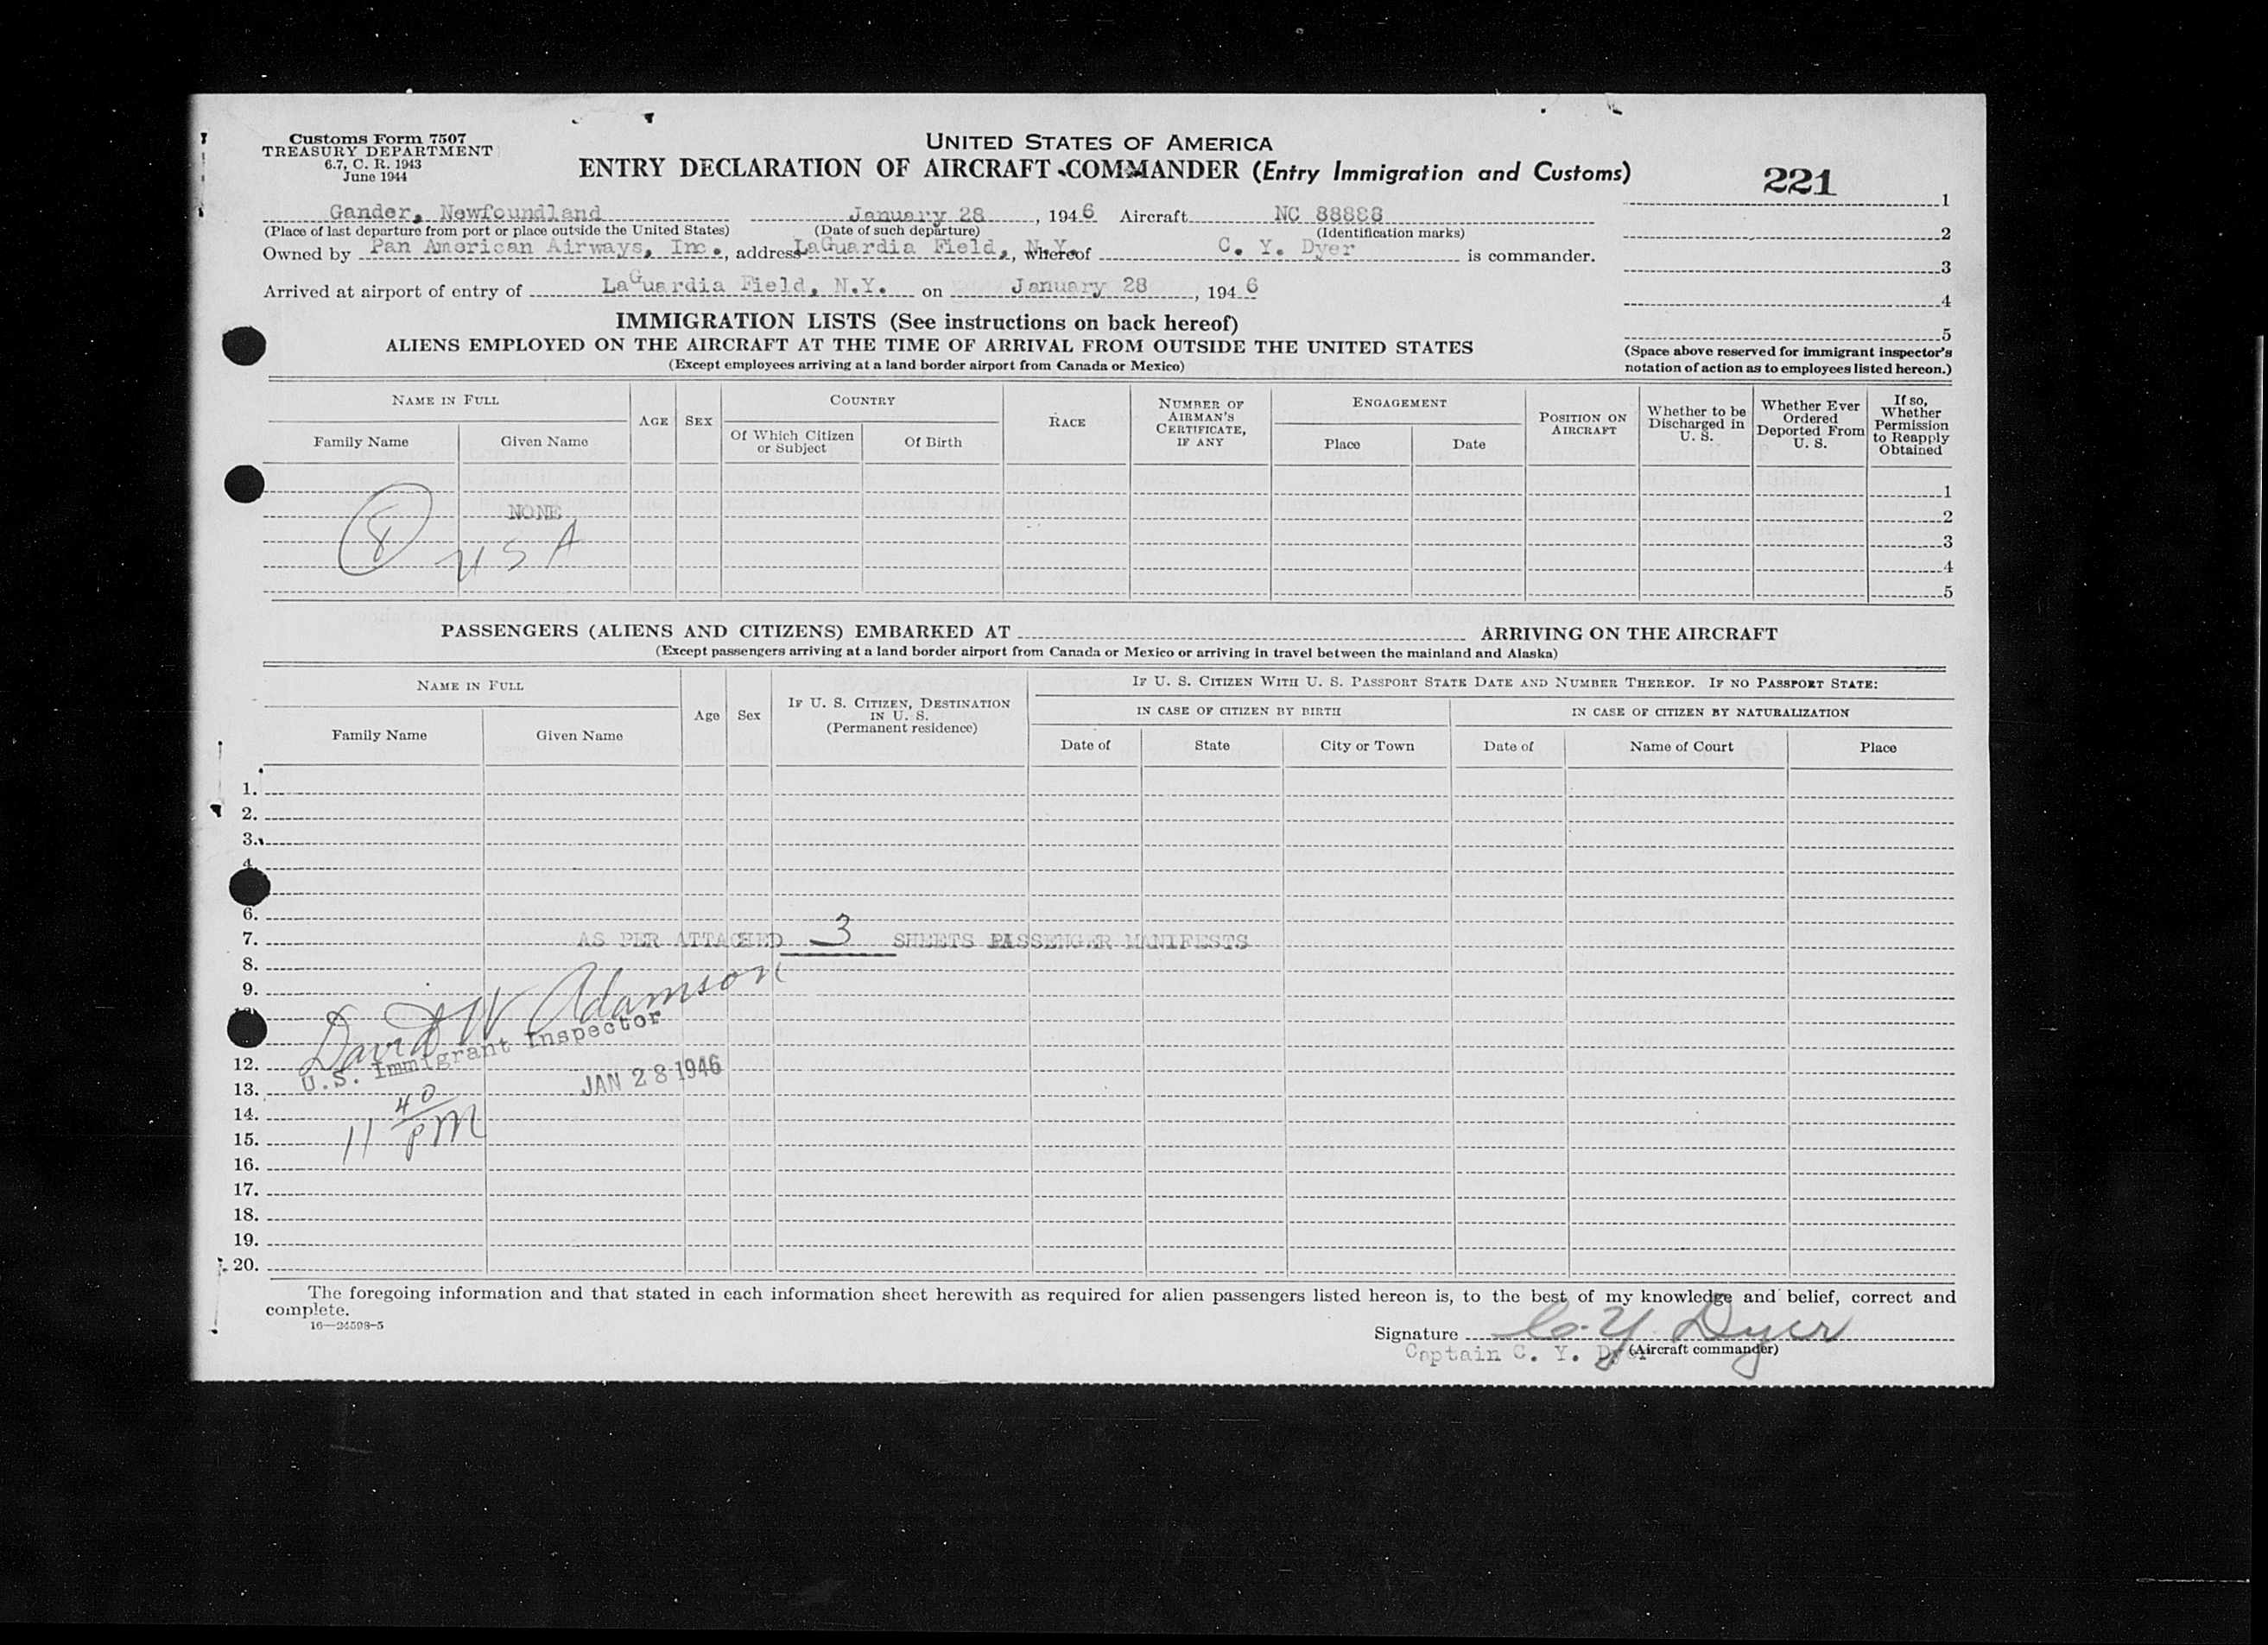 Customs Form 7507
TREASURY DEPARTMENT
6.7, C. R. 1943
June 1944
UNITED STATES OF AMERICA
ENTRY DECLARATION OF AIRCRAFT COMMANDER (Entry Immigration and Customs)
221
1
2
3
4
5
(Space above reserved for immigrant inspector's
notation of action as to employees listed hereon.)
Gander, Newfoundland January 28, 1946 Aircraft NC 88888
(Place of last departure from port or place outside the United States) (Date of such departure) (Identification marks)
Owned by Pan American Airways, Inc., address LaGuardia Field, N.Y., whereof C. Y. Dyer is commander.
Arrived at airport of entry of LaGuardia Field, N.Y. on January 28, 1946
IMMIGRATION LISTS (See instructions on back hereof)
ALIENS EMPLOYED ON THE AIRCRAFT AT THE TIME OF ARRIVAL FROM OUTSIDE THE UNITED STATES
(Except employees arriving at a land border airport from Canada or Mexico)
NAME IN FULL
Family Name Given Name
AGE SEX
COUNTRY
Of Which Citizen or Subject Of Birth
RACE
NUMBER OF AIRMAN'S CERTIFICATE, IF ANY
ENGAGEMENT
Place Date
POSITION ON AIRCRAFT
Whether to be Discharged in U. S.
Whether Ever Ordered Deported From U. S.
If so, Whether Permission to Reapply Obtained
1
NONE 2
8 USA 3
4
5
PASSENGERS (ALIENS AND CITIZENS) EMBARKED AT ARRIVING ON THE AIRCRAFT
(Except passengers arriving at a land border airport from Canada or Mexico or arriving in travel between the mainland and Alaska)
NAME IN FULL
Family Name Given Name
Age Sex
IF U. S. CITIZEN, DESTINATION IN U. S. (Permanent residence)
IF U. S. CITIZEN WITH U. S. PASSPORT STATE DATE AND NUMBER THEREOF. IF NO PASSPORT STATE:
IN CASE OF CITIZEN BY BIRTH IN CASE OF CITIZEN BY NATURALIZATION
Date of State City or Town Date of Name of Court Place
1.
2.
3.
4.
6.
7. AS PER ATTACHED 3 SHEETS PASSENGER MANIFESTS
8.
9.
David W Adamson
U.S. Immigrant Inspector
12.
13. JAN 28 1946
14. 11 40 PM
15.
16.
17.
18.
19.
20.
The foregoing information and that stated in each information sheet herewith as required for alien passengers listed hereon is, to the best of my knowledge and belief, correct and
complete.
16—24598-5
Signature C. Y. Dyer
Captain C. Y. Dyer (Aircraft commander)